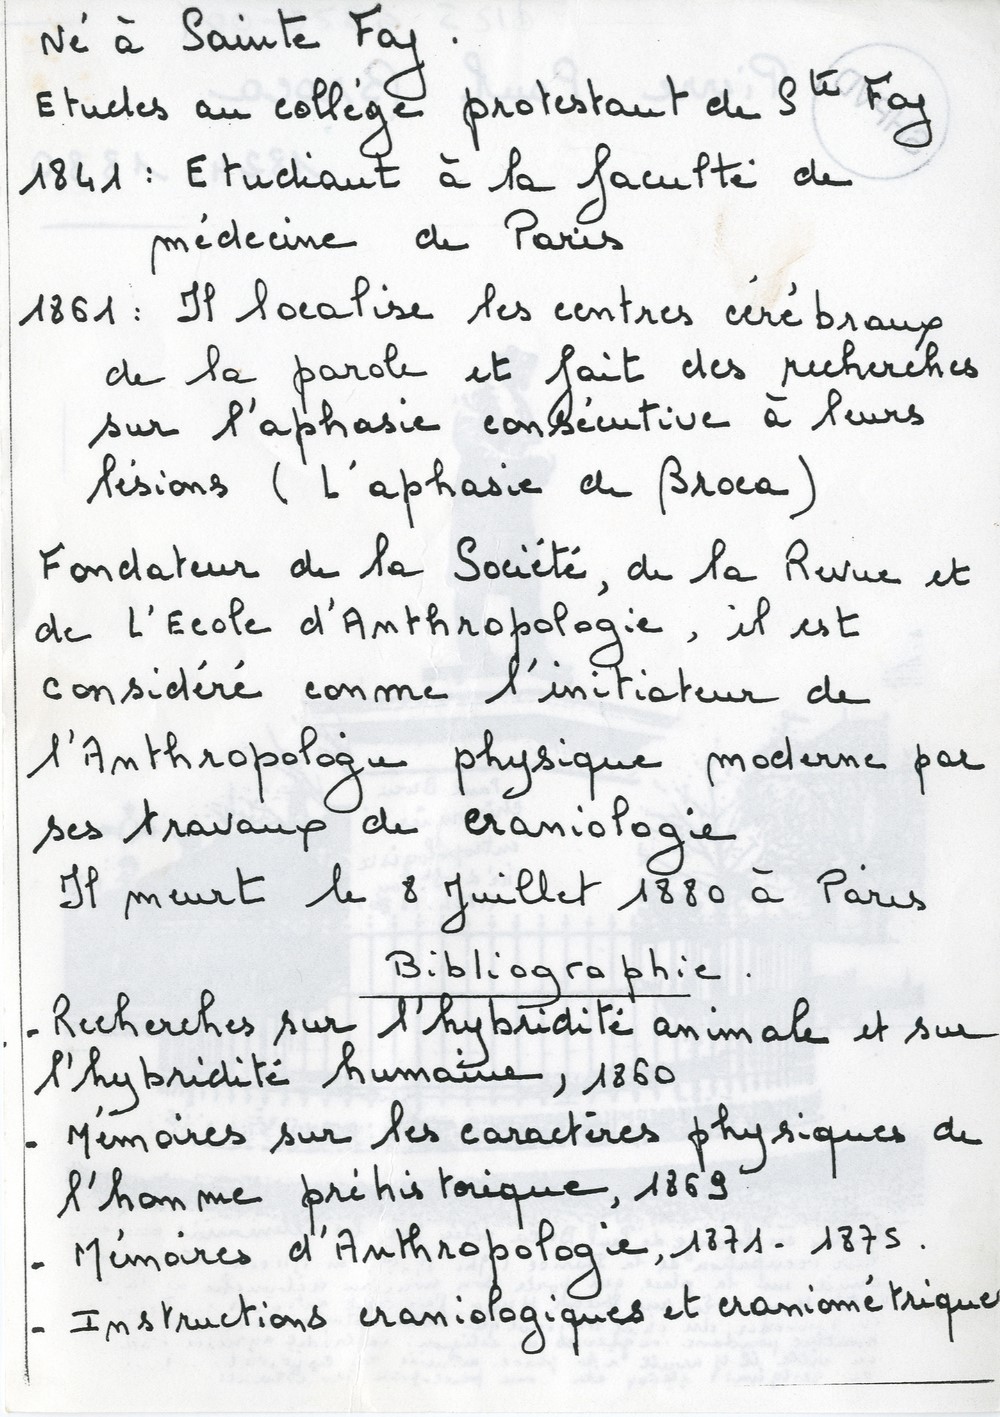 Né à Sainte Foy.
Etudes au collége protestant de Ste Foy
1841 : Etudiant à la faculté de
médecine de Paris
1861 : Il localise les centres cérébraux
de la parole et fait des recherches
sur l'aphasie consécutive à leurs
lésions ( L'aphasie de Broca )
Fondateur de la Société, de la Revue et
de L'Ecole d'Anthropologie, il est
considéré comme l'initiateur de
l'Anthropologie physique moderne par
ses travaux de craniologie
Il meurt le 8 Juillet 1880 à Paris
Bibliographie.
- Recherches sur l'hybridité animale et sur
l'hybridité humaine, 1860
- Mémoires sur les caractères physiques de
l'homme préhistorique, 1869
- Mémoires d'Anthropologie, 1871 - 1875.
- Instructions craniologiques et craniométriques